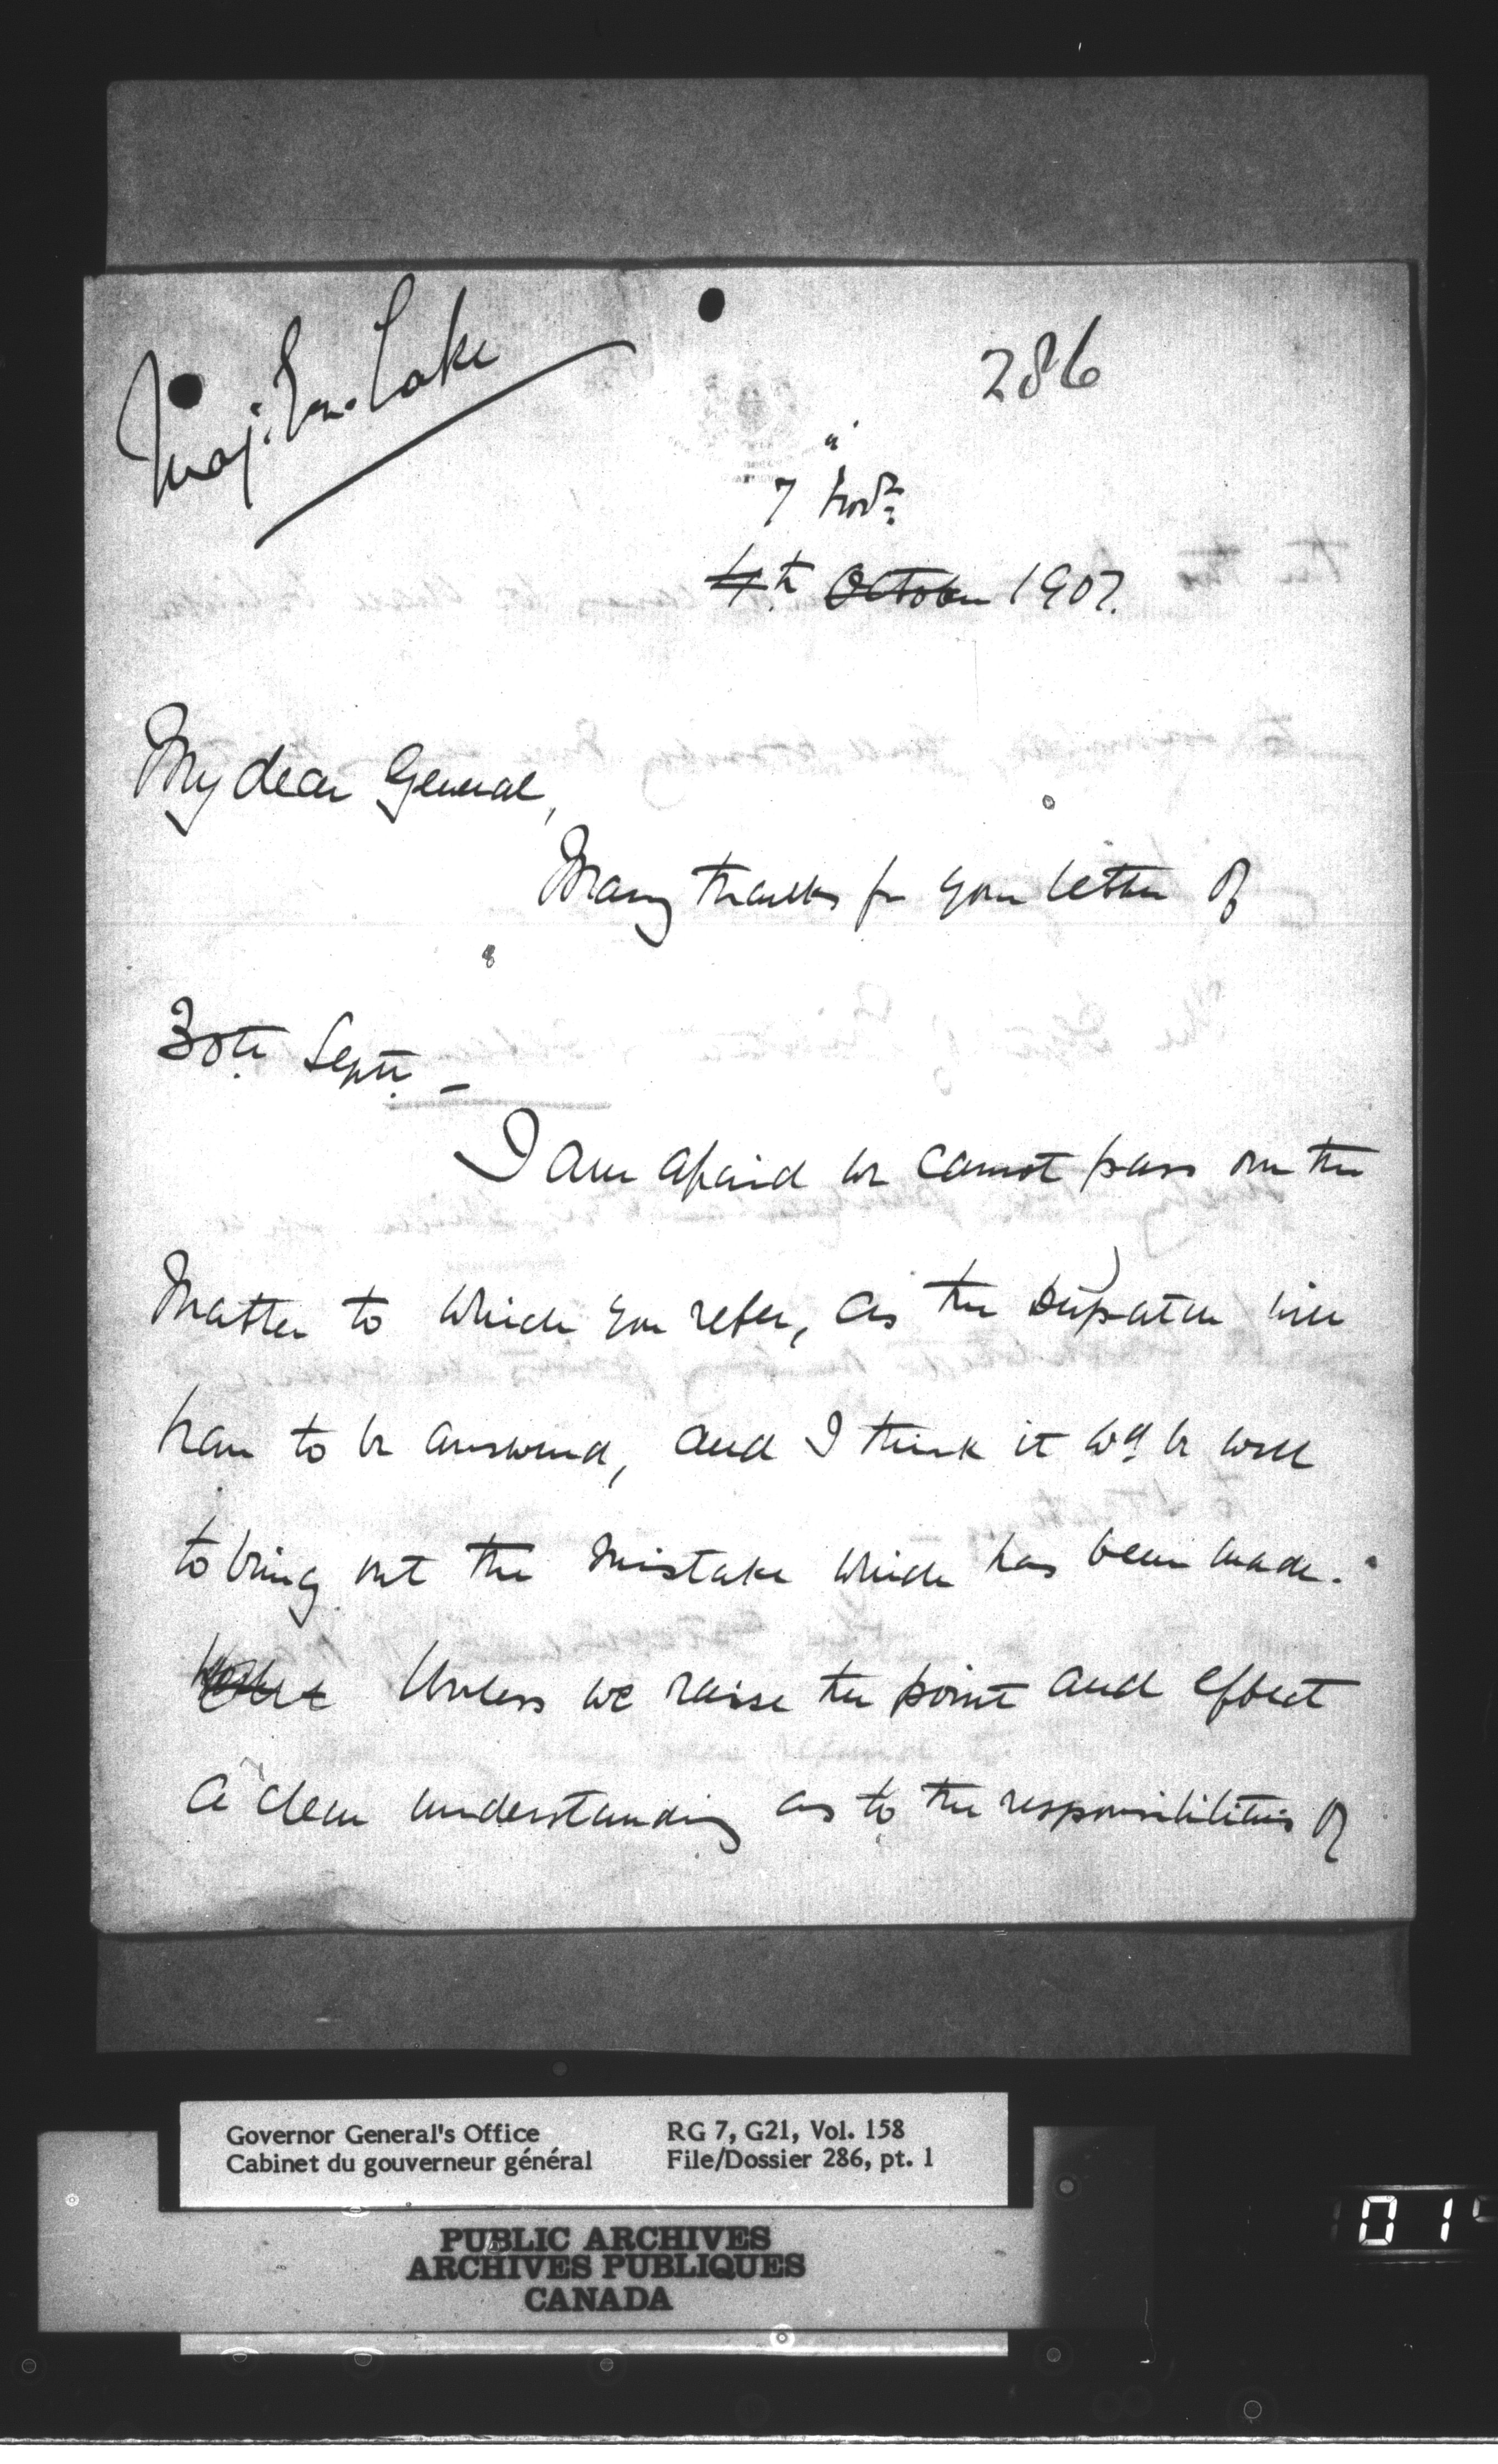 Maj: Gen. Lake
286
7 Novr
4th October 1907.
My dear General,
Many thanks for your letter of
30th Septr –
I am afraid we cannot pass over the
matter to which you refer, as the Dispatch will
have to be answered, and I think it wd be well
to bring out the mistake which has been made.
Unless we raise the point and effect
a clear understanding as to the responsibilities of
Governor General's Office
Cabinet du gouverneur général
RG 7, G21, Vol. 158
File/Dossier 286, pt. 1
PUBLIC ARCHIVES
ARCHIVES PUBLIQUES
CANADA
01